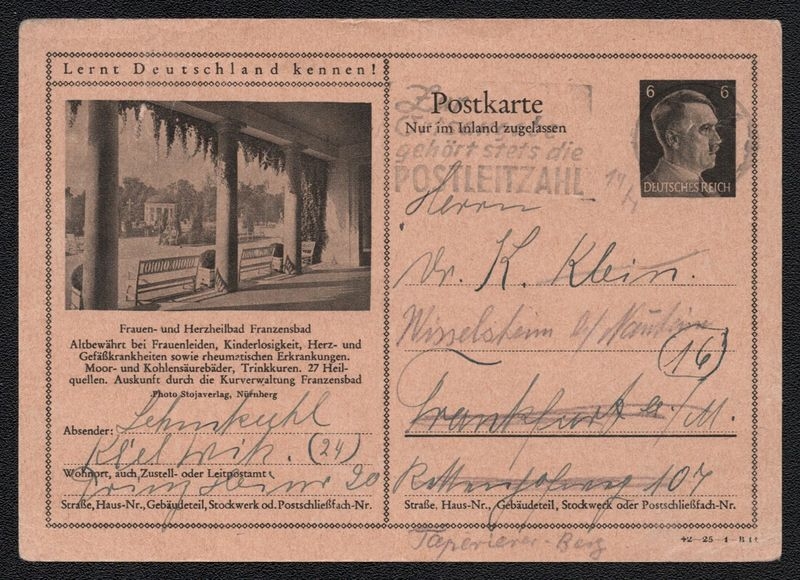 Lernt Deutschland kennen!
Frauen- und Herzheilbad Franzensbad
Altbewährt bei Frauenleiden, Kinderlosigkeit, Herz- und
Gefäßkrankheiten sowie rheumatischen Erkrankungen.
Moor- und Kohlensäurebäder, Trinkkuren. 27 Heil-
quellen. Auskunft durch die Kurverwaltung Franzensbad
Photo Stojaverlag, Nürnberg
Absender: Lehmkuhl
Kiel Wik. (24)
Wohnort, auch Zustell- oder Leitpostamt
20
Straße, Haus-Nr., Gebäudeteil, Stockwerk od. Postschließfach-Nr.
Postkarte
Nur im Inland zugelassen
gehört stets die
POSTLEITZAHL
6 6
DEUTSCHES REICH
Herrn
Dr. K. Klein.
Wisselsheim b/ Nauheim
(16)
Frankfurt a/M.
107
Straße, Haus-Nr., Gebäudeteil, Stockwerk oder Postschließfach-Nr.